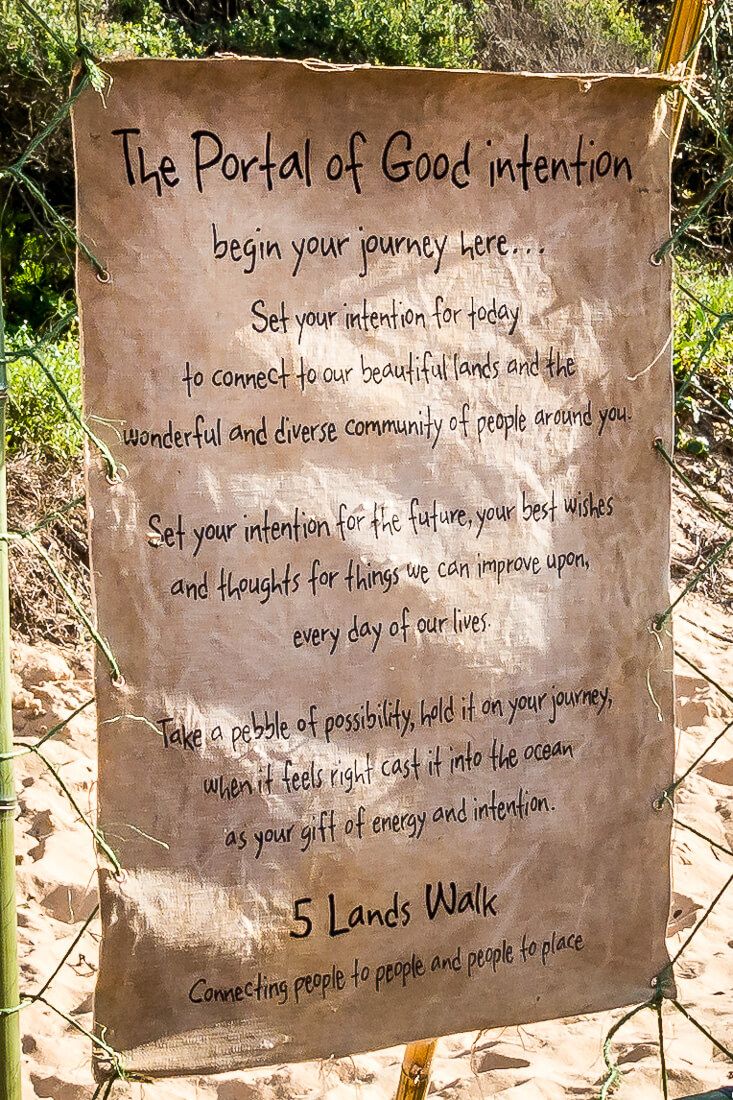 The Portal of Good intention
begin your journey here...
Set your intention for today
to connect to our beautiful lands and the
wonderful and diverse community of people around you.
Set your intention for the future, your best wishes
and thoughts for things we can improve upon,
every day of our lives.
Take a pebble of possibility, hold it on your journey,
when it feels right cast it into the ocean
as your gift of energy and intention.
5 Lands Walk
Connecting people to people and people to place